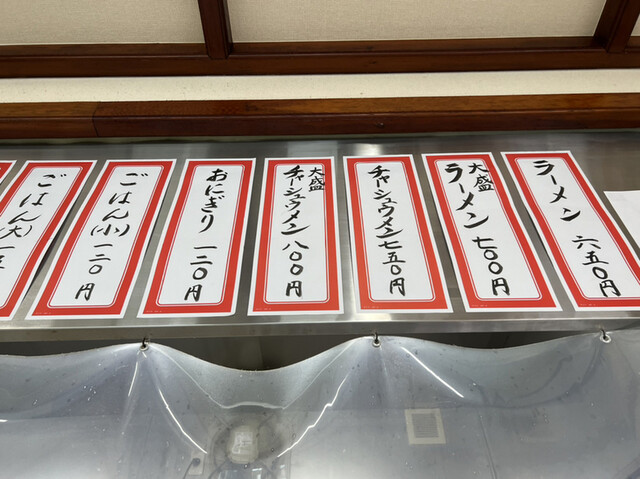 ラーメン 六五〇円
大盛 ラーメン 七〇〇円
チャーシュウメン 七五〇円
大盛 チャーシュウメン 八〇〇円
おにぎり 一二〇円
ごはん(小) 一二〇円
ごはん(大) 一五